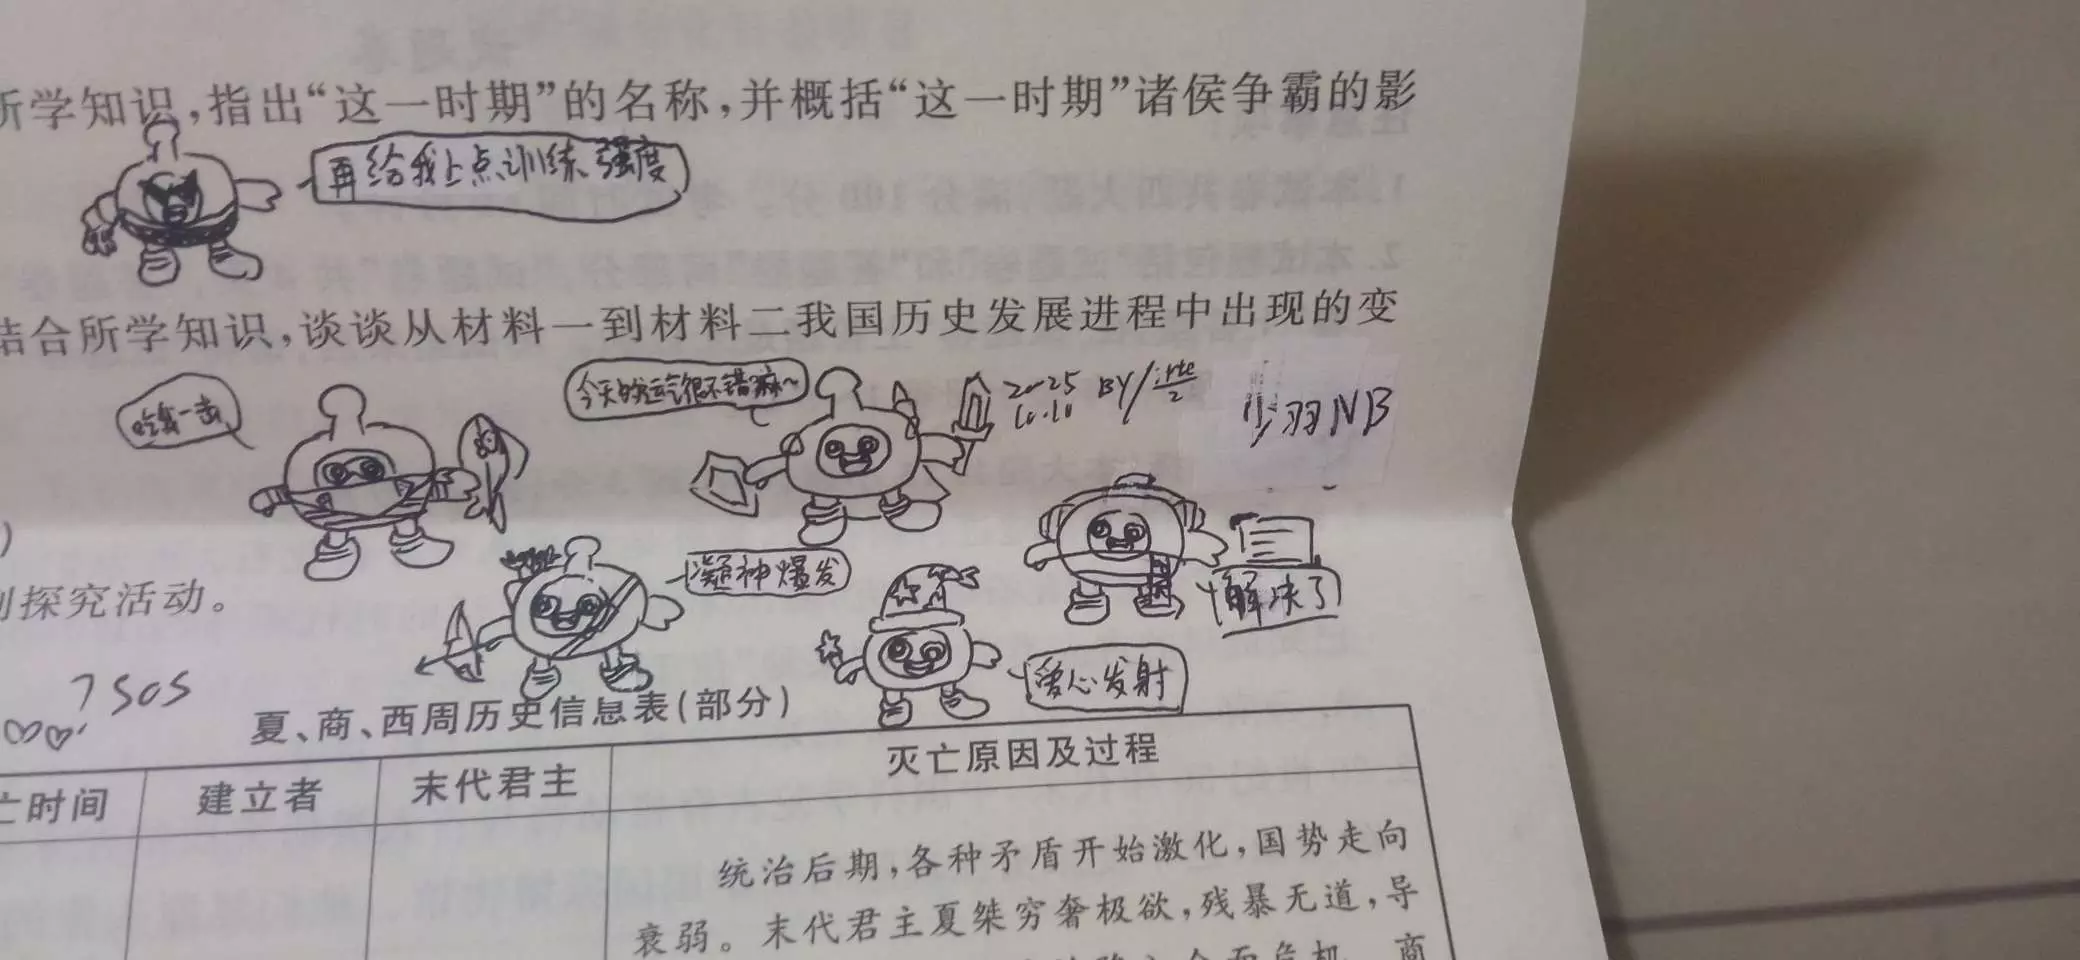 所学知识,指出“这一时期”的名称,并概括“这一时期”诸侯争霸的影
再给我上点训练强度
结合所学知识,谈谈从材料一到材料二我国历史发展进程中出现的变
吃我一击
今天的运气很不错嘛~
2025
10.10
BY/
少羽NB
凝神爆发
解决了
)
列探究活动。
爱心发射
?SOS
夏、商、西周历史信息表(部分)
亡时间 建立者 末代君主 灭亡原因及过程
统治后期,各种矛盾开始激化,国势走向
衰弱。末代君主夏桀穷奢极欲,残暴无道,导
商